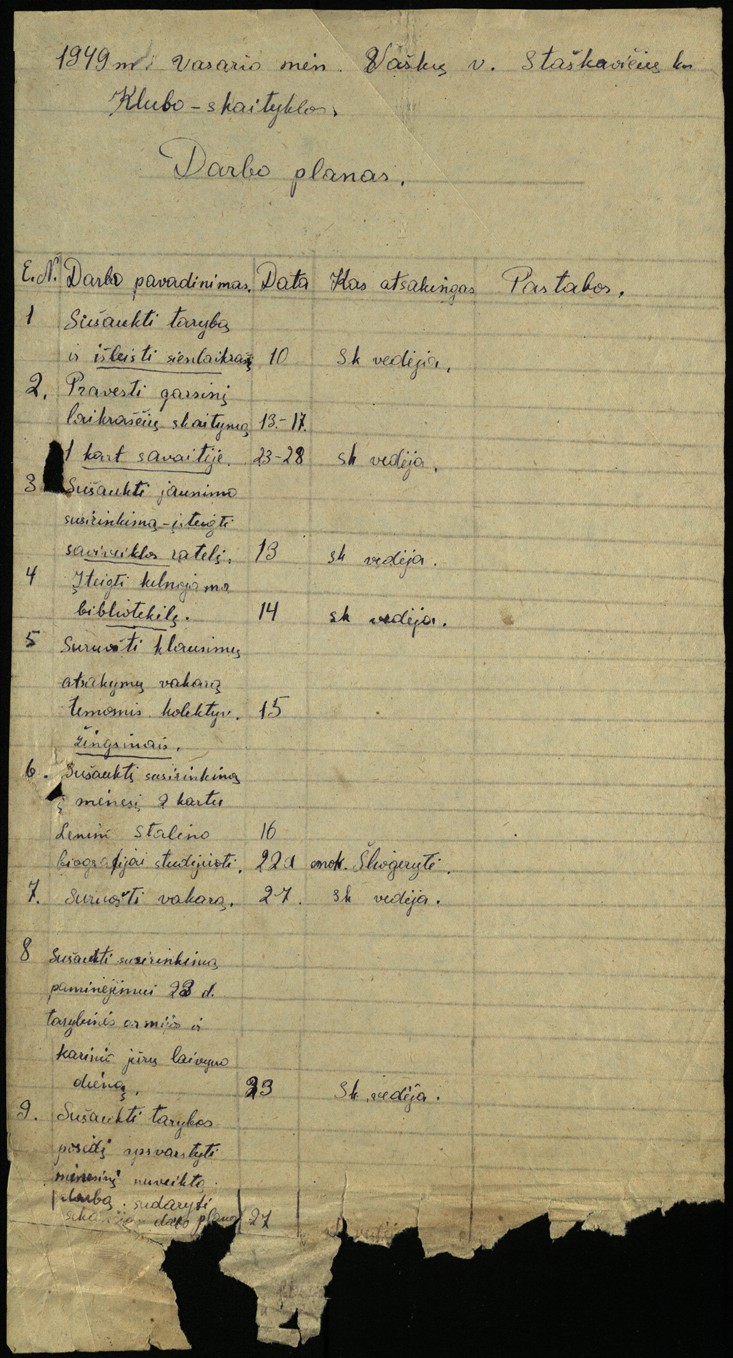 1949 m. Vasario mėn. Vaškų v. Staškavičių km
Klubo-skaityklos.
Darbo planas.
E.N. Darbo pavadinimas. Data Kas atsakingas Pastabos.
1 Sušaukti tarybą
ir išleisti sienlaikraštį 10 sk vedėja.
2. Pravesti garsinį
laikraščių skaitymą 13.-17.
1 kart savaitėje. 23-28 sk vedėja.
3 Sušaukti jaunimo
susirinkimą-įsteigti
saviveiklos ratelį. 13 sk vedėja.
4 Įteigti kilnojamą
bibliotekėlę. 14 sk vedėja.
5 Suruošti klausimų
atsakymų vakarą
temomis kolektyv. 15
žingsniais.
6. Sušauktį susirinkimą
į mėnesį 2 kartu
Lenino Stalino 16
biografijai studijuoti. 22 d mok.
7. Suruošti vakarą. 27. sk vedėja.
8 Sušaukti susirinkimą
paminėjimui 23 d.
tarybinės armijos ir
karinio jūrų laivyno
dieną. 23 Sk. vedėja.
9. Sušaukti tarybos
posėdį apsvarstyti
mėnesinį nuveiktą
darbą. sudaryti
darbo planą 27